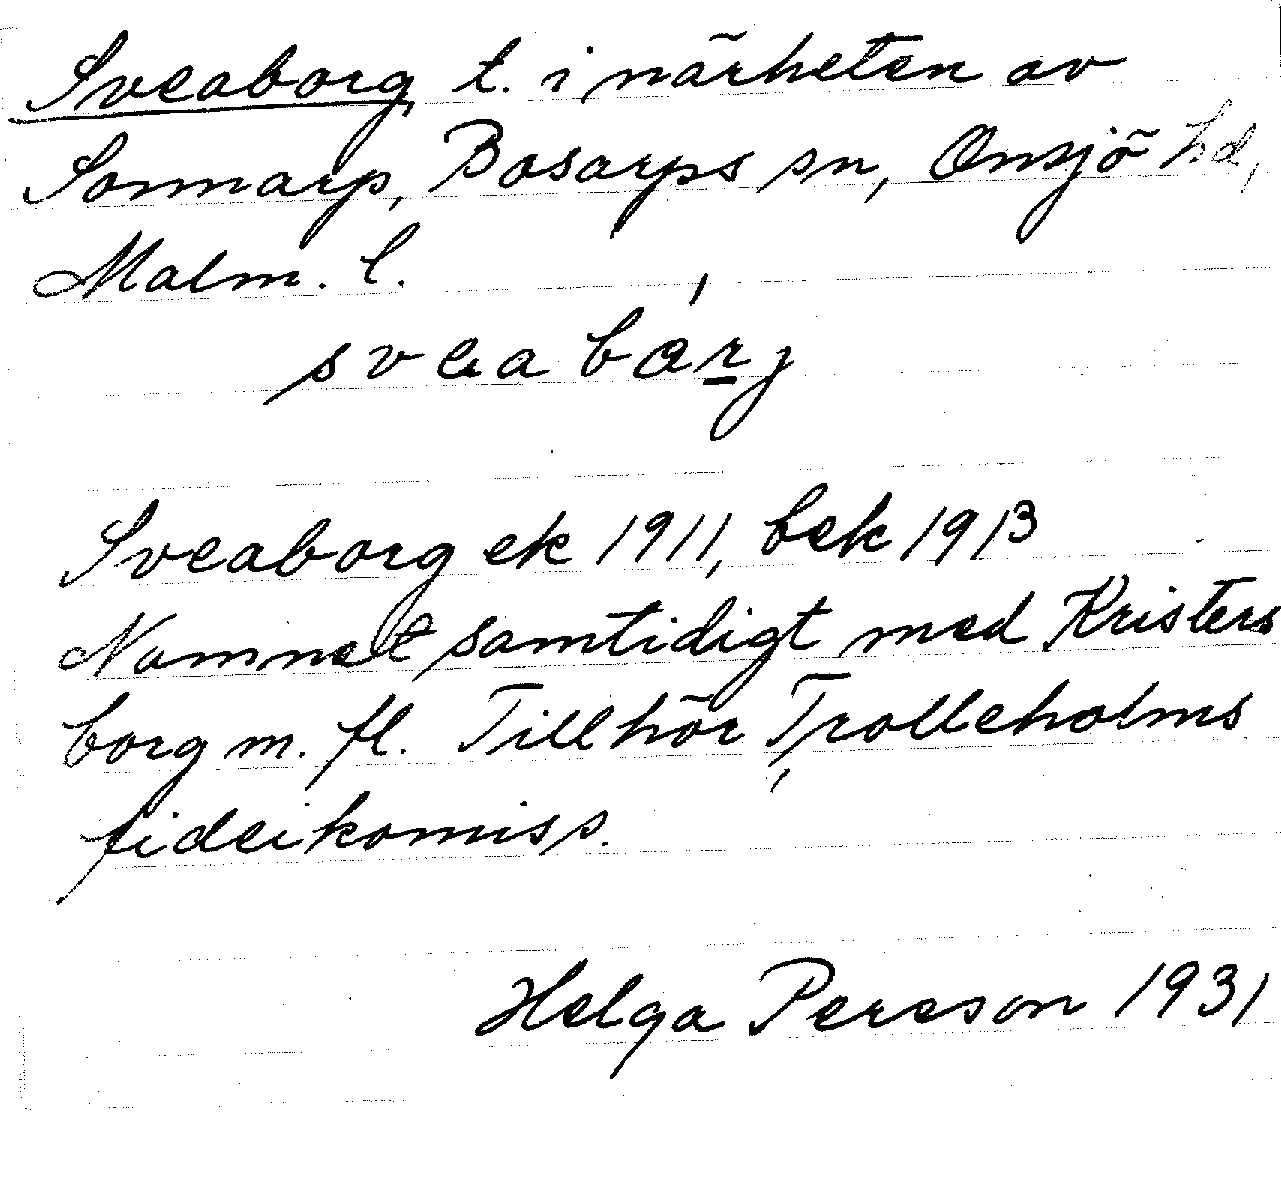 Sveaborg t. i närheten av
Sonnarp, Bosarps sn, Onsjö hd,
Malm. l.
sveabårj
Sveaborg ek 1911, bek 1913
Namnet samtidigt med Kristers
borg m. fl. Tillhör Trolleholms
fideikomiss.
Helga Persson 1931